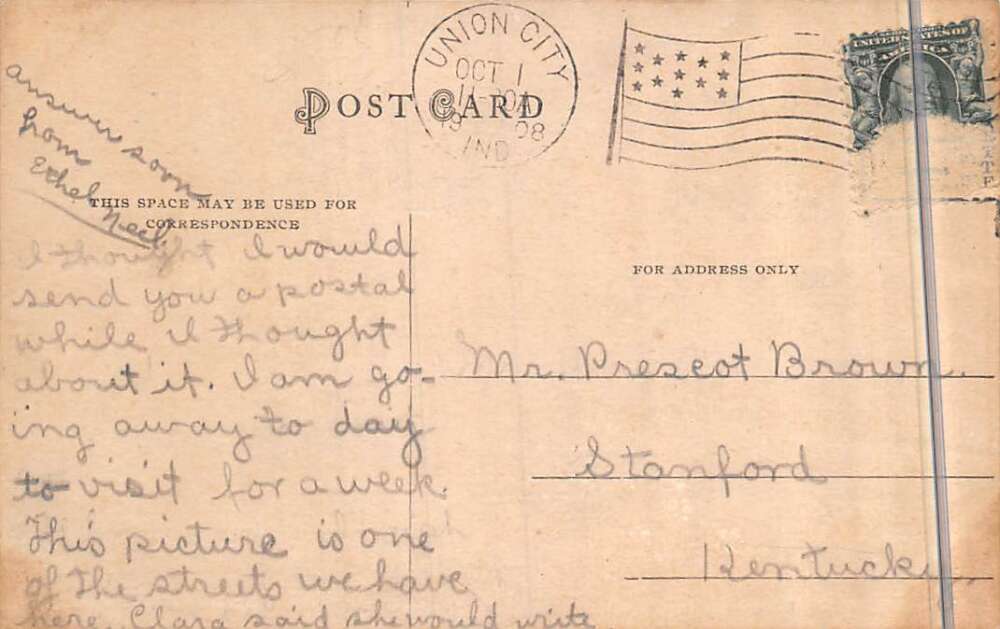 answer soon
from
Ethel
POST CARD
UNION CITY
OCT 1
11
19 08
IND
UNITED STATES OF
AMERICA
THIS SPACE MAY BE USED FOR
CORRESPONDENCE
FOR ADDRESS ONLY
I thought I would
send you a postal
while I thought
about it. I am go-
ing away to day
to visit for a week.
This picture is one
of the streets we have
here. Clara said she would write
Mr. Prescot Brown.
Stanford
Kentucky.